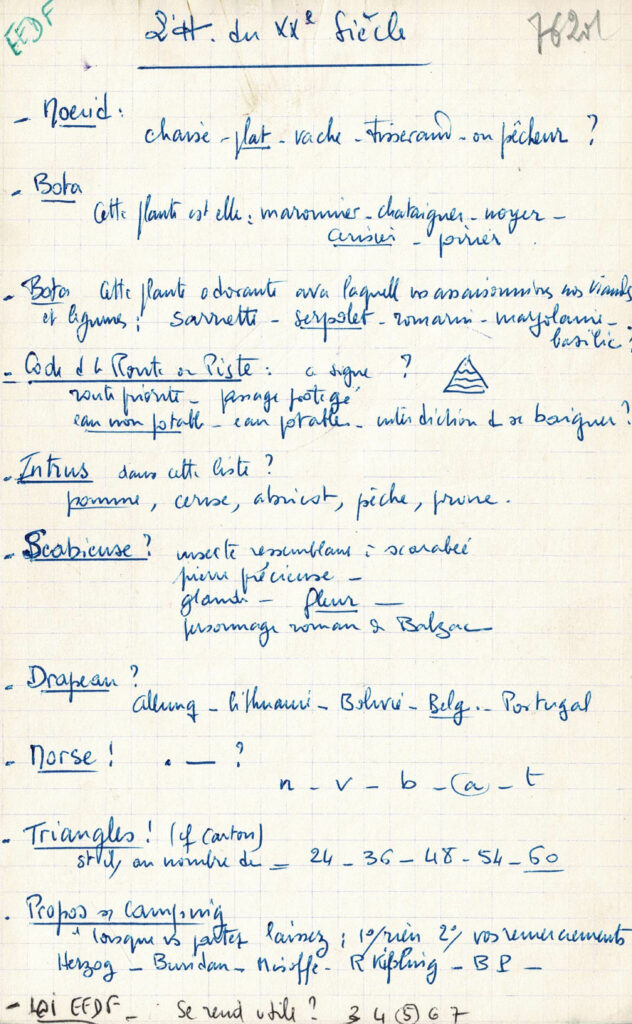 EEDF
L'H. du XXe Siècle
7620l
- Noeud :
chaise - plat - vache - Tisserand - ou pêcheur ?
- Bota
Cette plante est elle : maronnier - chataigner - noyer -
cerisier - poirier
- Bota Cette plante odorante avec laquell vs assaisonnires vos viandes
et légumes : sarriette - serpolet - romarin - marjolaine -
basilic ?
- Code d la Route ou Piste : ce signe ?
route priorité - passage protégé
eau non potable - eau potable - interdiction d se baigner ?
- Intrus dans cette liste ?
pomme, cerise, abricot, pêche, prune.
- Scabieuse ? insecte ressemblant à scarabée
pierre précieuse -
glande - fleur -
personnage roman d Balzac
- Drapeau ?
Allemag - lithuanie - Bolivie - Belg. - Portugal
- Morse ! . — ?
n - v - b - a - t
- Triangles ! (cf Carton)
st ils au nombre de - 24 - 36 - 48 - 54 - 60
- Propos sr Camping
" lorsque vs partez laissez ; 1°/ rien 2°/ vos remerciements
Herzog - Buridan - Misoffe - R Kipling - B P -
- Loi EEDF - Se rend utile ? 3 4 5 6 7